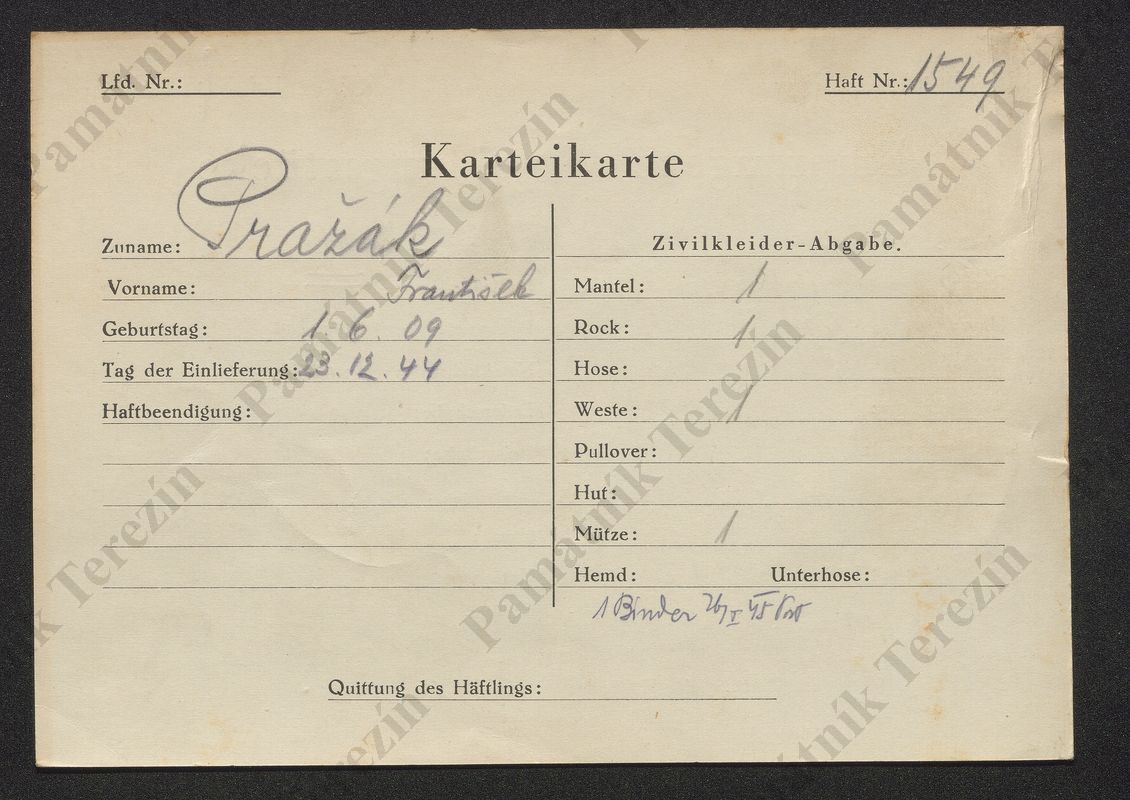 Lfd. Nr.: Haft Nr.: 1549
Karteikarte
Zuname: Pražák
Vorname: František
Geburtstag: 1. 6. 09
Tag der Einlieferung: 23. 12. 44
Haftbeendigung:
Zivilkleider-Abgabe.
Mantel: 1
Rock: 1
Hose:
Weste: 1
Pullover:
Hut:
Mütze: 1
Hemd: Unterhose:
1 Binder 26/I 45
Quittung des Häftlings:
Památník Terezín